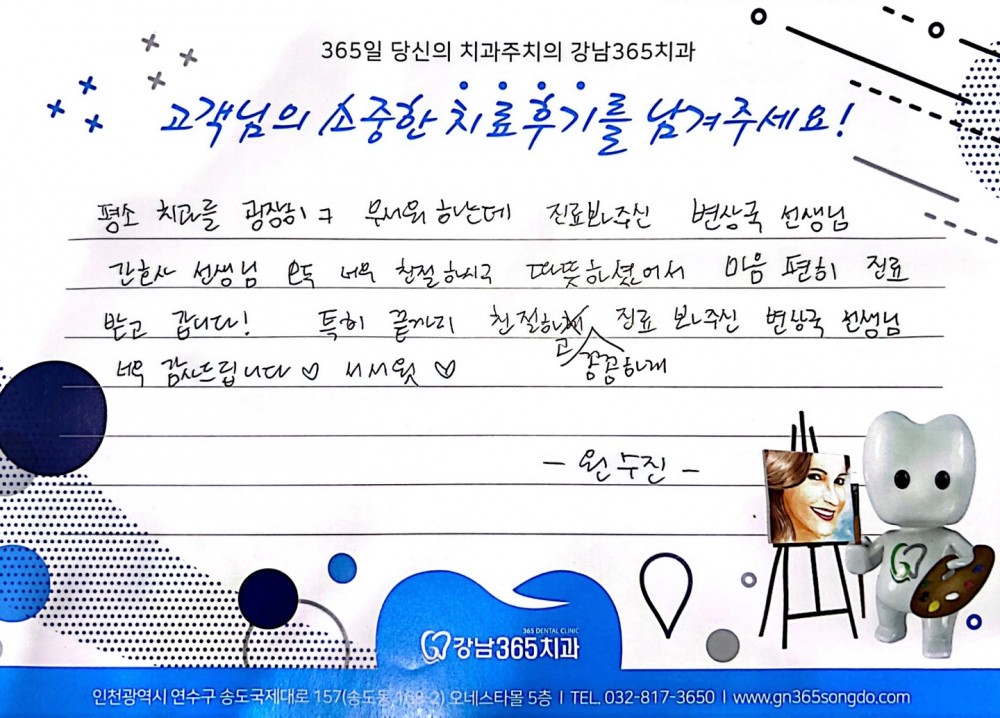 365일 당신의 치과주치의 강남365치과
고객님의 소중한 치료후기를 남겨주세요!
평소 치과를 굉장히 무서워 하는데 진료봐주신 변상국 선생님
간호사 선생님 모두 너무 친절하시고 따뜻하셨어서 마음 편히 진료
받고 갑니다! 특히 끝까지 친절하고 꼼꼼하게 진료 봐주신 변상국 선생님
너무 감사드립니다 ♡ 써서윗 ♡
- 원수진 -
365 DENTAL CLINIC
강남365치과
인천광역시 연수구 송도국제대로 157(송도동, 168-2) 오네스타몰 5층 | TEL. 032-817-3650 | www.gn365songdo.com